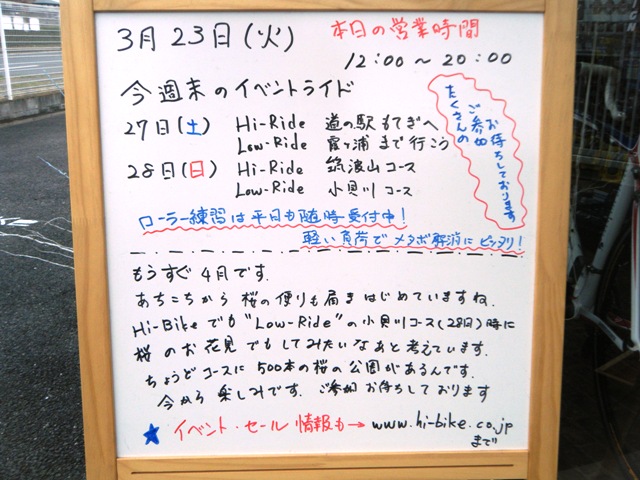 3月23日(火)
本日の営業時間
12:00～20:00
今週末のイベントライド
27日(土) Hi-Ride 道の駅もてぎへ
Low-Ride 霞ヶ浦まで行こう
28日(日) Hi-Ride 筑波山コース
Low-Ride 小貝川コース
たくさんの
ご参加
お待ちしております
ローラー練習は平日も随時受付中!
軽い負荷でメタボ解消にピッタリ!
もうすぐ4月です.
あちこちから桜の便りも届きはじめていますね.
Hi-Bikeでも"Low-Ride"の小貝川コース(28日)時に
桜のお花見でもしてみたいなぁと考えています.
ちょうどコースに500本の桜の公園があるんです.
今から楽しみです. ご参加お待ちしております
★イベント・セール情報も→www.hi-bike.co.jp
まで